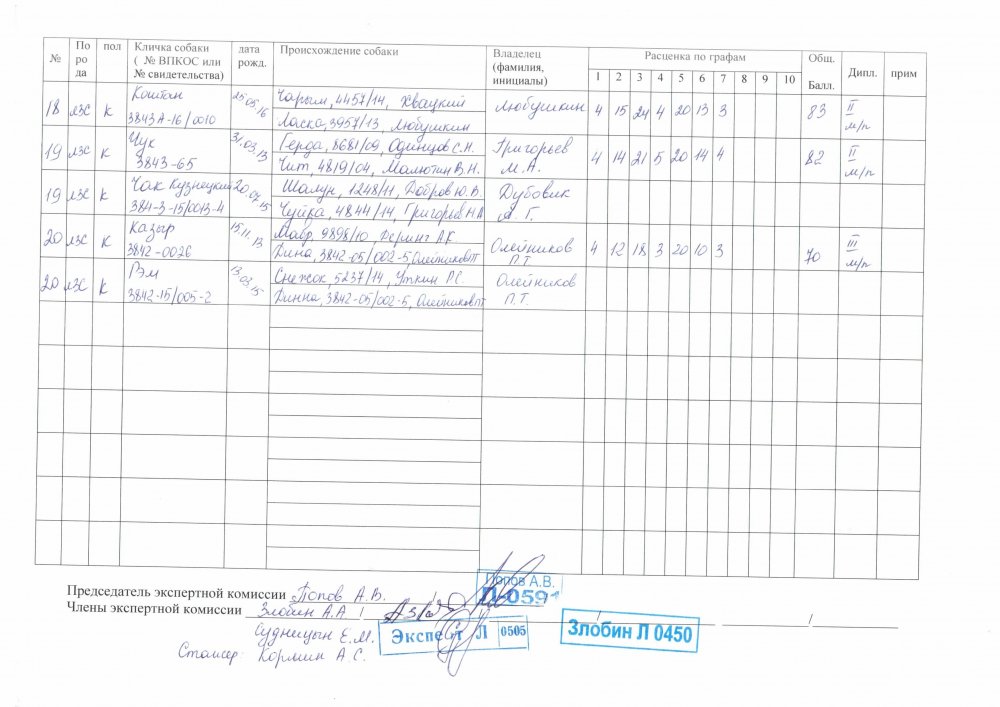 № По ро да пол Кличка собаки ( № ВПКОС или № свидетельства) дата рожд. Происхождение собаки Владелец (фамилия, инициалы) Расценка по графам Общ. Балл. Дипл. прим
1 2 3 4 5 6 7 8 9 10
18 лзс к Каштан 25.05.16 Чарым, 4457/14, Хвацкий Любушкин 4 15 24 4 20 13 3 83 II м/п
3843А-16/0010 Ласка, 3957/13, Любушкин
19 лзс к Чук 31.03.13 Герда, 8681/09, Одинцов С.Н. Григорьев 4 14 21 5 20 14 4 82 II м/п
3843-65 Чит, 4819/04, Малютин В.Н. М.А.
19 лзс к Чак Кузнецкий 20.07.15 Шалун, 1248/11, Добров Ю.В Дубовик
384-3-15/0013-4 Чуйка, 4844/14, Григорьев Н.А А. Г.
20 лзс к Казыр 15.11.13 Мавр, 9898/10, Деринг А.К Олейников 4 12 18 3 20 10 3 70 III м/п
3842-0026 Дина, 3842-05/002-5, Олейников П.Т
20 лзс к Рэм 13.03.15 Снежок, 5237/14, Уткин Р.С. Олейников
3842-15/005-2 Динна, 3842-05/002-5, Олейников ПТ П.Т.
Председатель экспертной комиссии Попов А.В. Попов А.В.
Л-0591
Члены экспертной комиссии Злобин А.А / / /
Судницын Е.М. Эксперт Л 0505 Злобин Л 0450
Стажер: Кормин А.С.